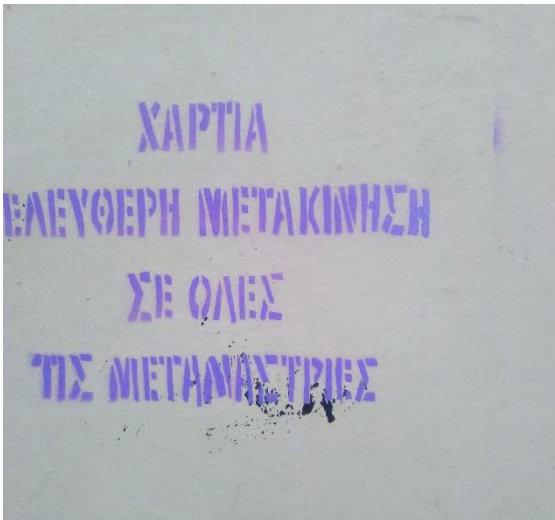 ΧΑΡΤΙΑ
ΕΛΕΥΘΕΡΗ ΜΕΤΑΚΙΝΗΣΗ
ΣΕ ΟΛΕΣ
ΤΙΣ ΜΕΤΑΝΑΣΤΡΙΕΣ